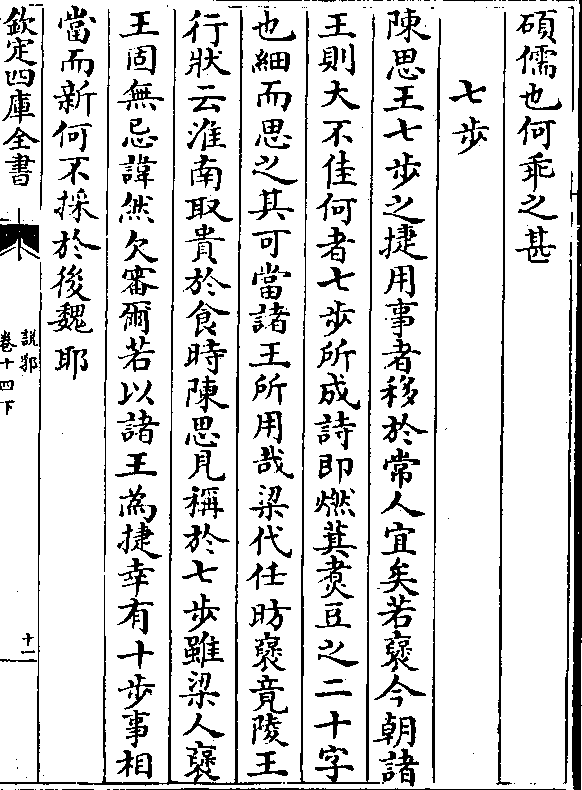 碩儒也何乖之甚
七步
陳思王七步之捷用事者移於常人宜矣若褒今朝諸
王則大不佳何者七步所成詩即燃萁煑豆之二十字
也細而思之其可當諸王所用哉梁代任昉褒竟陵王
行狀云淮南取貴於食時陳思見稱於七步雖梁人褒
王固無忌諱然欠審爾若以諸王為捷幸有十步事相
當而新何不採於後魏耶
欽定四庫全書
說郛
卷十四下
十二